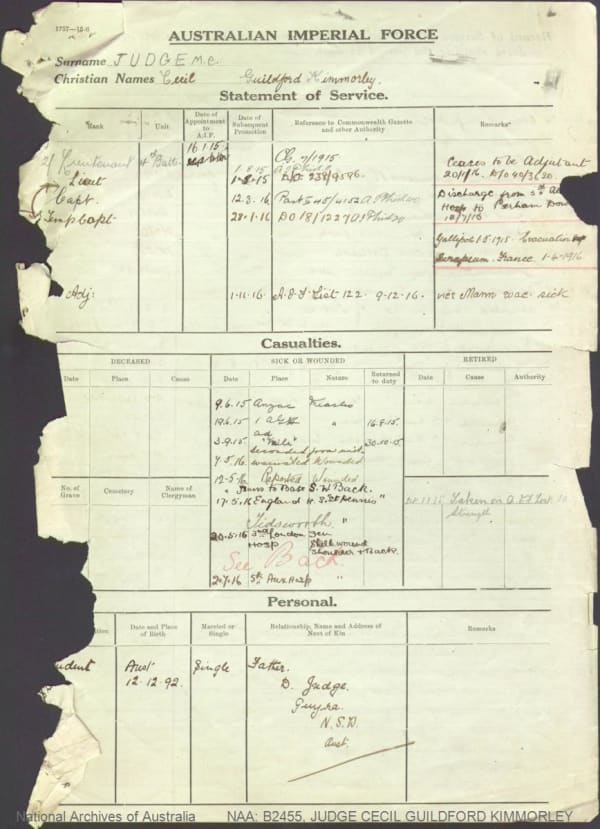 1757—15-6
AUSTRALIAN IMPERIAL FORCE
Surname JUDGE M.C.
Christian Names Cecil Guildford Kimmorley.
Statement of Service.
Rank Unit Date of Appointment to A.I.F. Date of Subsequent Promotion Reference to Commonwealth Gazette and other Authority Remarks
2/ Lieutenant 4th Battn 16.1.15
Lieut
Capt.
Temp Capt.
1.8.15
12.3.16
28.1.16 DO 18/1227
Ceases to be Adjutant
20/1/16.
Discharge from
Hosp to Perham Down
Gallipoli 1-5-1915. Evacuation
France 1-4-1916
Adj: 1.11.16 A.I.F List 122 9-12-16 vice Mann evac. sick
Casualties.
DECEASED SICK OR WOUNDED RETIRED
Date Place Cause Date Place Nature Returned to duty Date Cause Authority
9.6.15 Anzac
19.6.15 1 " 16.9.15
3.9.15 30.10.15
7.5.16 Wounded
12-5-16 Reported Wounded
No. of Grave Cemetery Name of Clergyman
Trans to Base S.W Back.
17.5.16 England H.S. St Dennis "
Taken on
Strength
Tidsworth "
20-5-16 3rd London Gen
Hosp Shell wound
Shoulder + Back.
See Back
2-7-16 5th Aux Hosp "
Personal.
Date and Place of Birth Married or Single Relationship, Name and Address of Next of Kin Remarks
Aust Single Father.
12.12.92. D. Judge.
Guyra.
N.S.W.
Aust.
National Archives of Australia NAA: B2455, JUDGE CECIL GUILDFORD KIMMORLEY